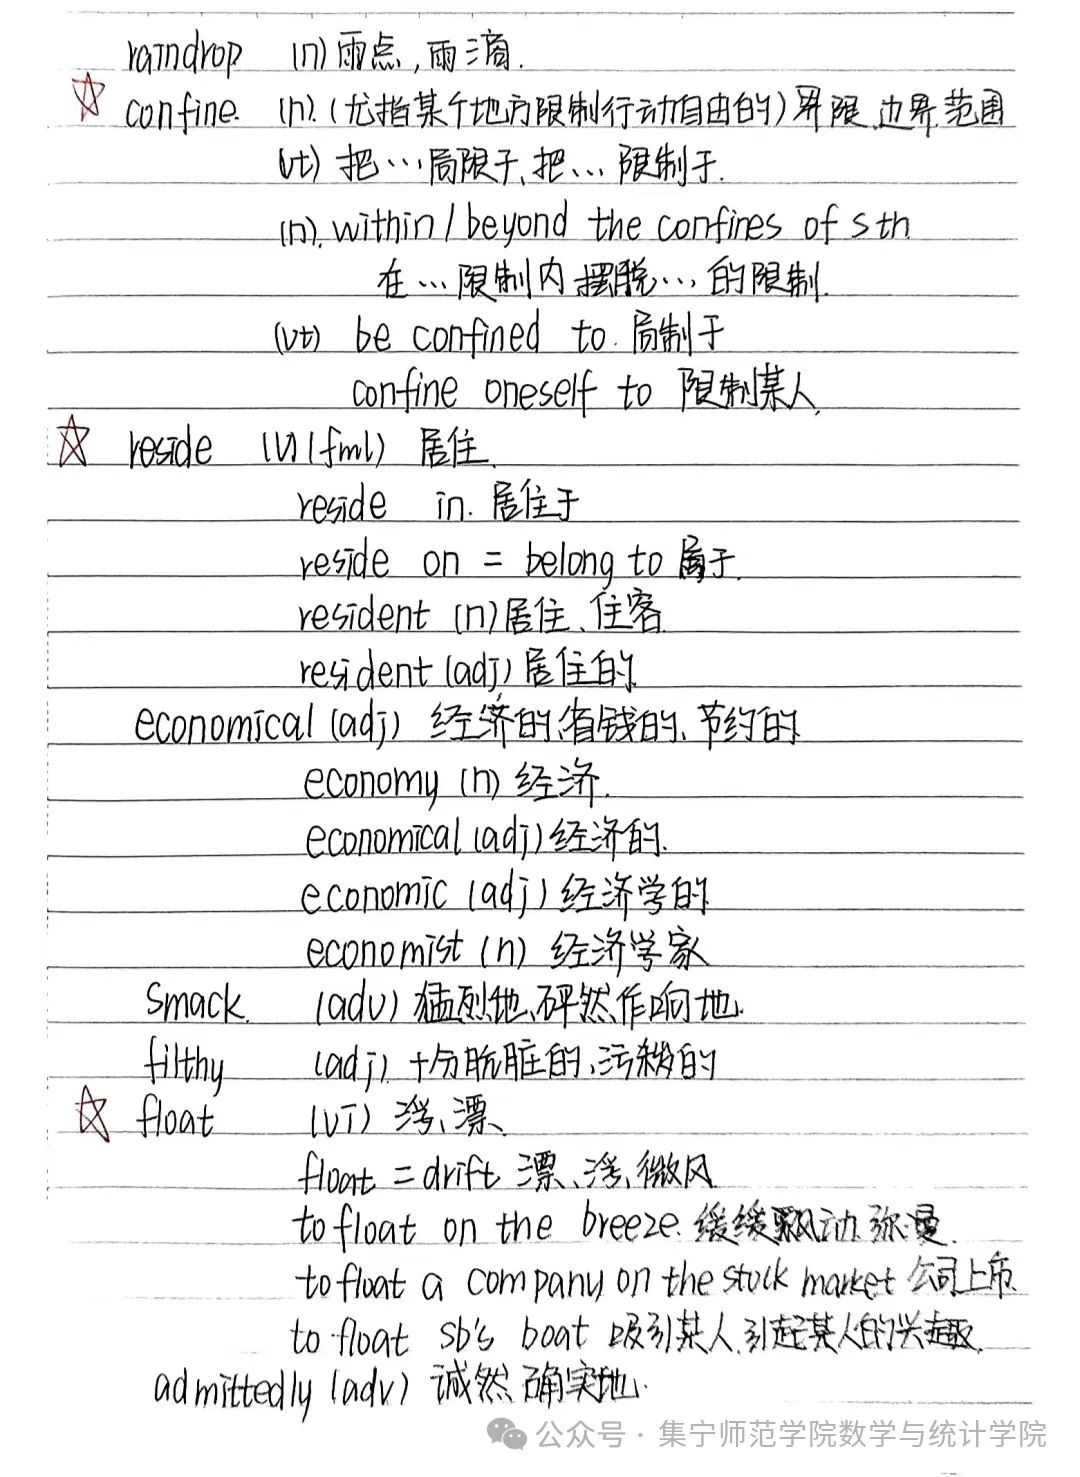 raindrop (n) 雨点,雨滴.
confine. (n).(尤指某个地方限制行动自由的)界限.边界.范围
(vt) 把…局限于、把… 限制于.
(n). within / beyond the confines of sth.
在…限制内 摆脱…的限制.
(vt) be confined to. 局制于
confine oneself to 限制某人.
reside (v) (fml) 居住.
reside in. 居住于
reside on = belong to 属于.
resident (n) 居住、住客.
resident (adj) 居住的.
economical (adj) 经济的、省钱的、节约的.
economy (n) 经济.
economical (adj) 经济的.
economic (adj) 经济学的.
economist (n) 经济学家
Smack. (adv) 猛烈地、砰然作响地.
filthy (adj) 十分肮脏的、污秽的
float (vi) 浮、漂.
float = drift 漂、浮、微风.
to float on the breeze. 缓缓飘动.弥漫.
to float a company on the stock market 公司上市.
to float sb's boat 吸引某人.引起某人的兴趣.
admittedly (adv) 诚然.确实地.
公众号·集宁师范学院数学与统计学院